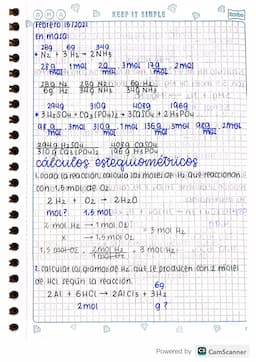 D M A
KEEP IT SIMPLE
Scribe
Febrero 15/2021
En masa:
28g 6g 34g
• N2 + 3 H2 → 2NH3
28g/mol 1mol 2g/mol 3mol 17g/mol 2mol
28g N2 28g N2 6g H2
6g H2 34g NH3 34g NH3
294g 310g 408g 196g
• 3 H2SO4 + Ca3(PO4)2 → 3CaSO4 + 2H3PO4
98g/mol 3mol 310g/mol 1mol 136g/mol 3mol 98g/mol 2mol
294g H2SO4 408g CaSO4
310g Ca3(PO4)2 196g H3PO4
cálculos estequiométricos
1. Dada la reacción, calcula las moles de H2 que reaccionan
con 1.5 mol de O2
2 H2 + O2 → 2H2O
mol? 1.5 mol
2 mol H2 → 1 mol O2
x → 1.5 mol O2
= 3 mol H2
1.5 mol O2 · 2mol H2 / 1 mol O2 = 3 mol H2
2. Calcular los gramos de H2 que se producen con 2 moles
de HCl según la reacción.
6g
2Al + 6HCl → 2AlCl3 + 3H2
2mol g?
Powered by CamScanner